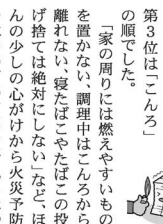 第3位は「こんろ」
の順でした。
「家の周りには燃えやすいもの
を置かない、調理中はこんろから
離れない、寝たばこやたばこの投
げ捨ては絶対にしない」など、ほ
んの少しの心がけから火災予防